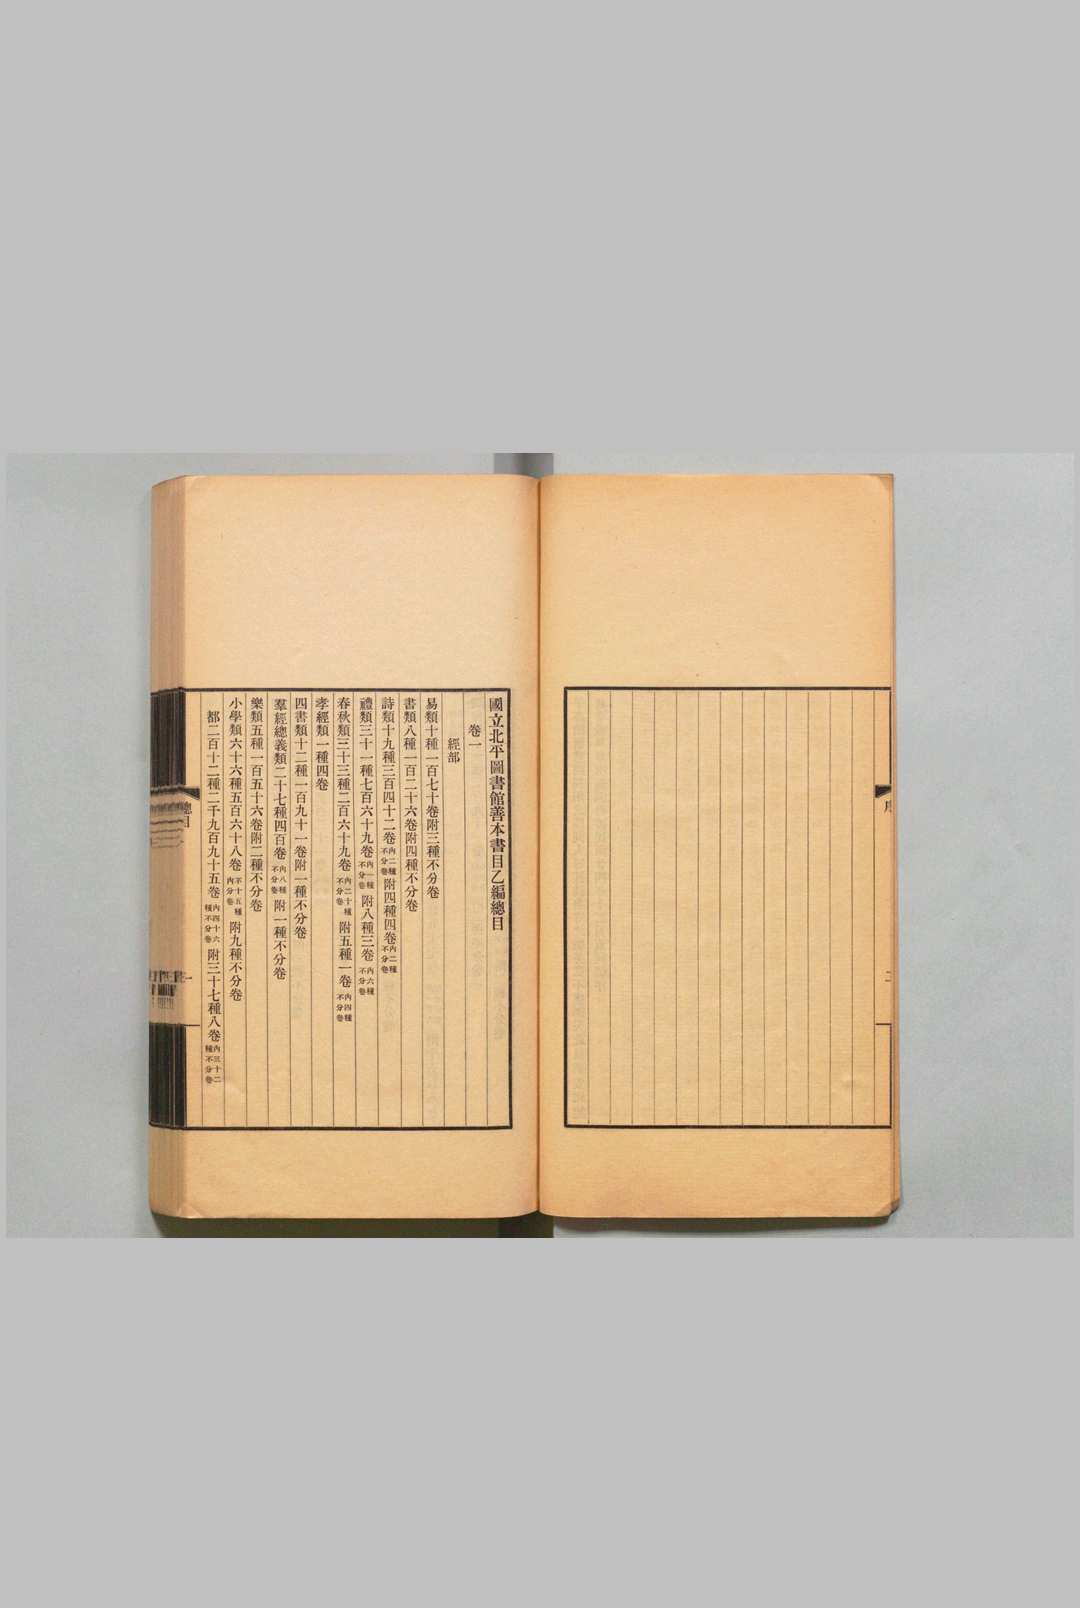 序
二
國立北平圖書館善本書目乙編總目
卷一
經部
易類十種一百七十卷附三種不分卷
書類八種一百二十六卷附四種不分卷
詩類十九種三百四十二卷內二種不分卷附四種四卷內二種不分卷
禮類三十一種七百六十九卷內一種不分卷附八種三卷內六種不分卷
春秋類三十三種二百六十九卷內二十種不分卷附五種一卷內四種不分卷
孝經類一種四卷
四書類十二種一百九十一卷附一種不分卷
羣經總義類二十七種四百卷內八種不分卷附一種不分卷
樂類五種一百五十六卷附二種不分卷
小學類六十六種五百六十八卷不十五種內分卷附九種不分卷
都二百十二種二千九百九十五卷內四十六種不分卷附三十七種八卷內三十二種不分卷
總目
一